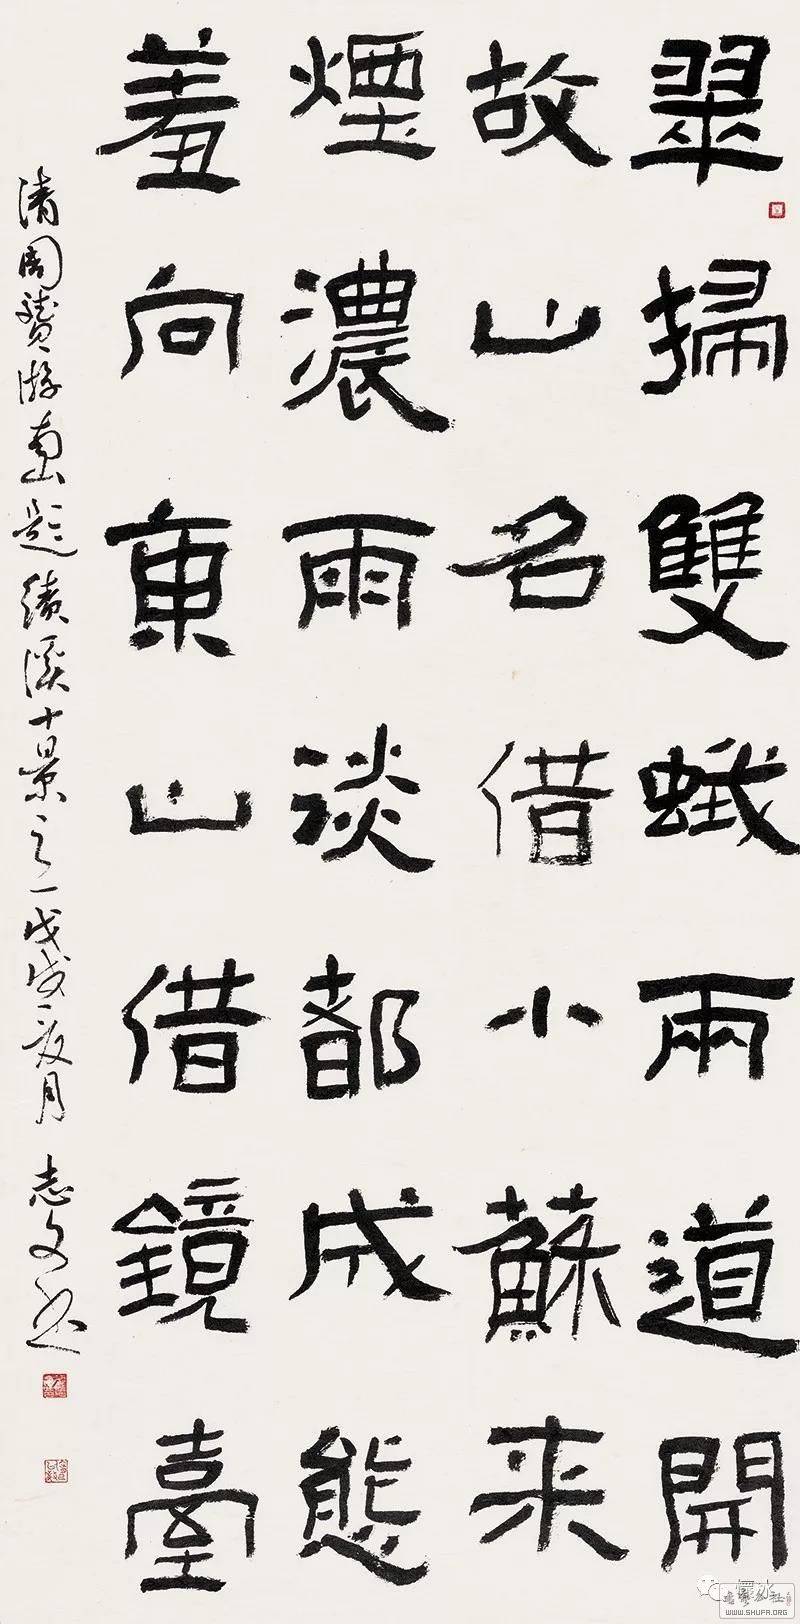 翠掃雙蛾兩道開
故山名借小蘇来
煙濃雨淡都成態
羞向東山借鏡臺
清周贇游南山題績溪十景之一戊戌夏月志文書
WWW.SHUFA.ORG